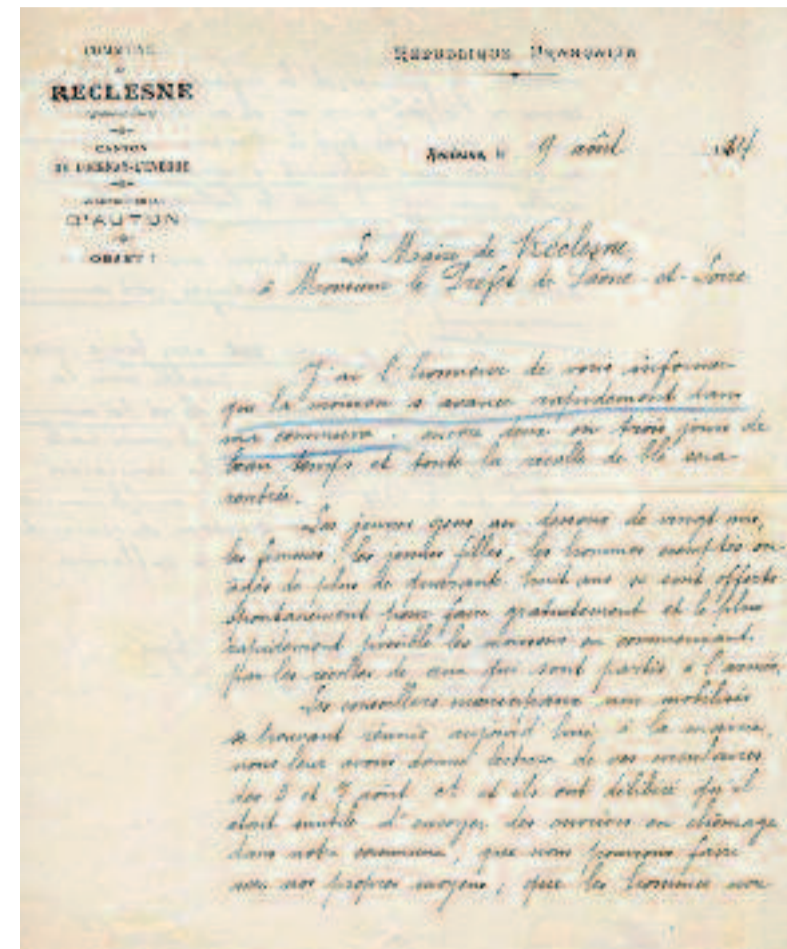 COMMUNE
DE
RECLESNE
CANTON
DE LUCENAY-L'ÉVÊQUE
ARRONDISSEMENT
D'AUTUN
OBJET :
RÉPUBLIQUE FRANÇAISE
Reclesne, le 9 août 1914
Le Maire de Reclesne,
à Monsieur le Préfet de Saône-et-Loire
J'ai l'honneur de vous informer
que la moisson s'avance rapidement dans
ma commune. encore deux ou trois jours de
beau temps et toute la récolte de blé sera
rentrée.
Les jeunes gens au dessous de vingt ans,
les femmes, les jeunes filles, les hommes exemptés ou
âgés de plus de quarante huit ans se sont offerts
spontanément pour faire gratuitement et le plus
rapidement possible les moissons en commençant
par les récoltes de ceux qui sont partis à l'armée.
Les conseillers municipaux non mobilisés
se trouvant réunis aujourd'hui à la mairie,
nous leur avons donné lecture de vos circulaires
des et 7 août et ils ont délibéré qu'il
était inutile d'envoyer des ouvriers en chômage
dans notre commune, que nous pouvions faire
avec nos propres moyens, que les hommes non